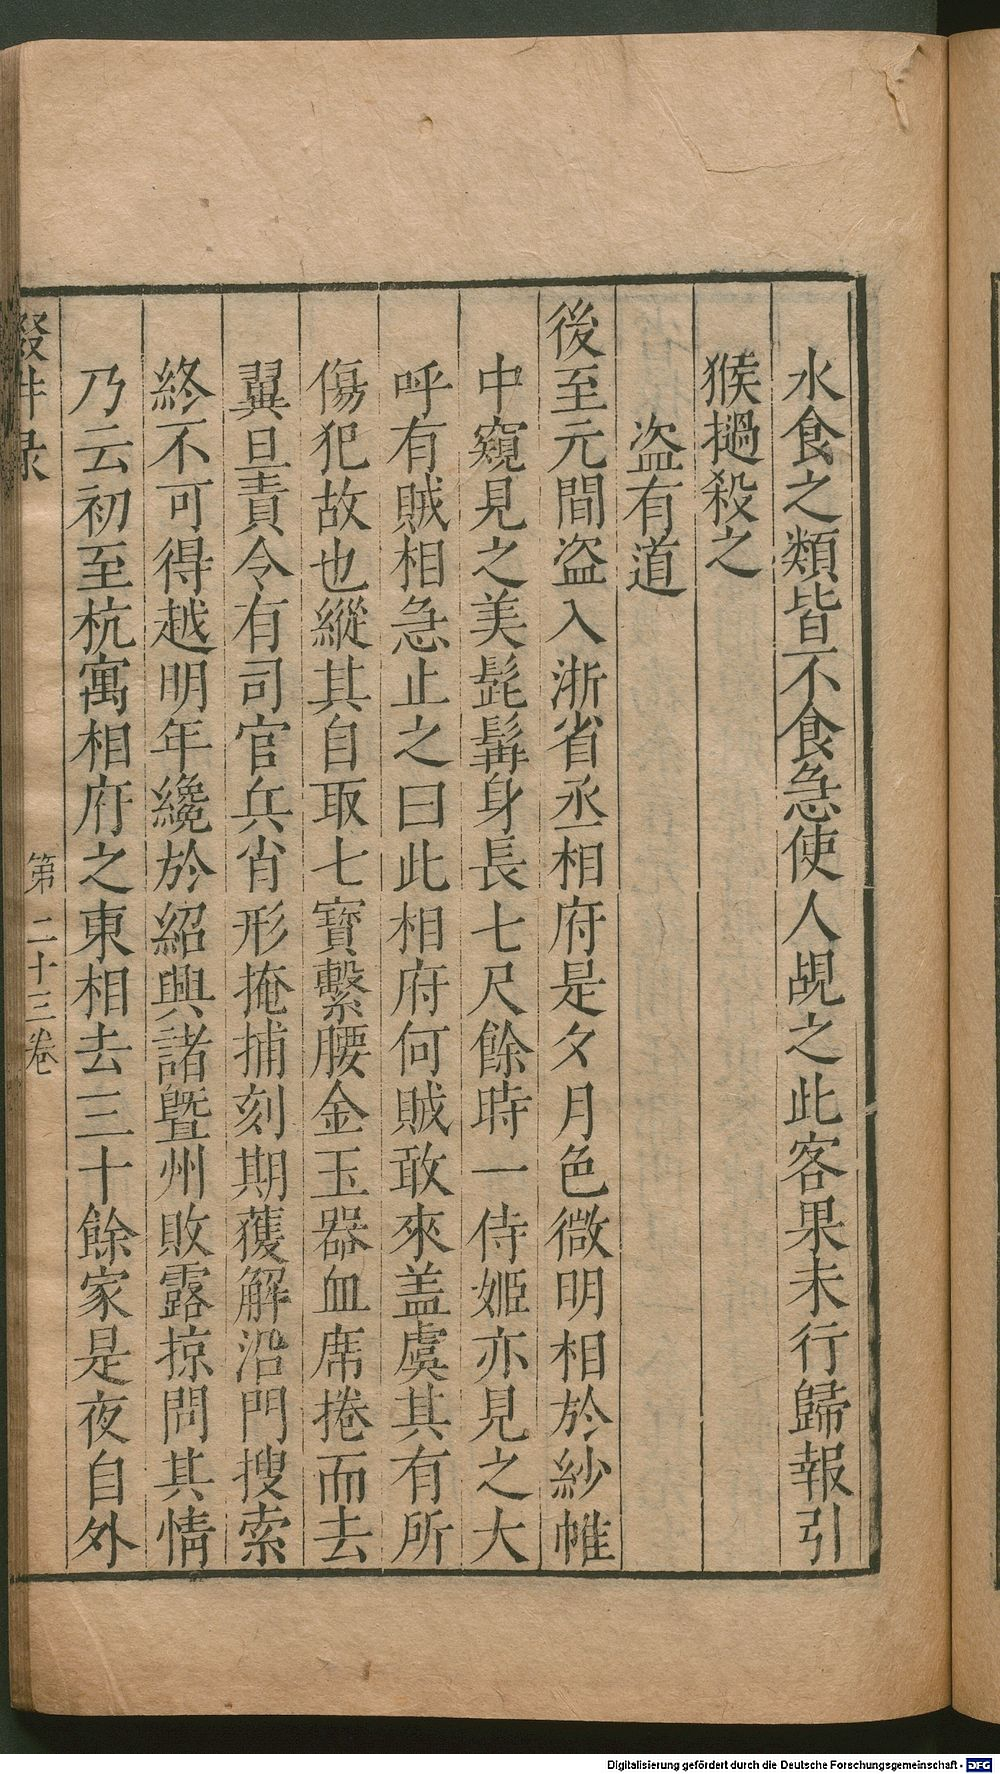 水食之類皆不食急使人覘之此客果未行歸報引
猴撾殺之
盗有道
後至元間盗入浙省丞相府是夕月色微明相於紗帷
中窺見之美髭髯身長七尺餘時一侍姬亦見之大
呼有賊相急止之曰此相府何賊敢來盖虞其有所
傷犯故也縱其自取七寶繫腰金玉器皿席捲而去
翼旦責令有司官兵肖形掩捕刻期獲解沿門搜索
終不可得越明年纔於紹興諸曁州敗露掠問其情
乃云初至杭寓相府之東相去三十餘家是夜自外
第二十三卷
Digitalisierung gefördert durch die Deutsche Forschungsgemeinschaft - DFG